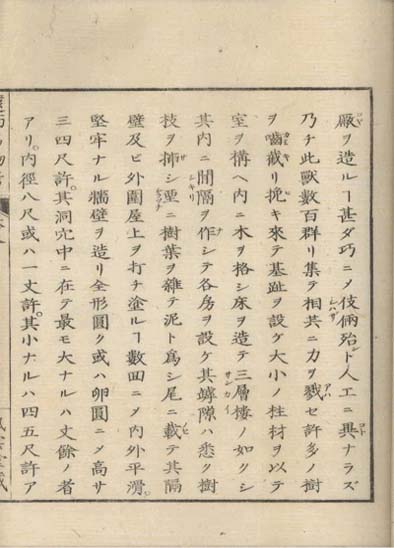 厰ヲ造ルヿ甚ダ巧ニメ伎倆殆ンド人工ニ異ナラズ
乃チ此獸數百群リ集テ相共ニ力ヲ戮セ許多ノ樹
ヲ嚙截リ挽キ來テ基趾ヲ設ケ大小ノ柱材ヲ以テ
室ヲ構ヘ内ニ木ヲ格シ床ヲ造テ三層樓ノ如クシ
其内ニ間隔ヲ作シテ各房ヲ設ケ其罅隙ハ悉ク樹
枝ヲ挿シ重ニ樹葉ヲ雜テ泥ト為シ尾ニ載テ其隔
壁及ビ外圍屋上ヲ打チ塗ルヿ數囬ニメ内外平滑。
堅牢ナル牆壁ヲ造リ全形圓ク或ハ卵圓ニメ高サ
三四尺許。其洞穴中ニ在テ最モ大ナルハ丈餘ノ者
アリ。内徑八尺或ハ一丈許。其小ナルハ四五尺許ア